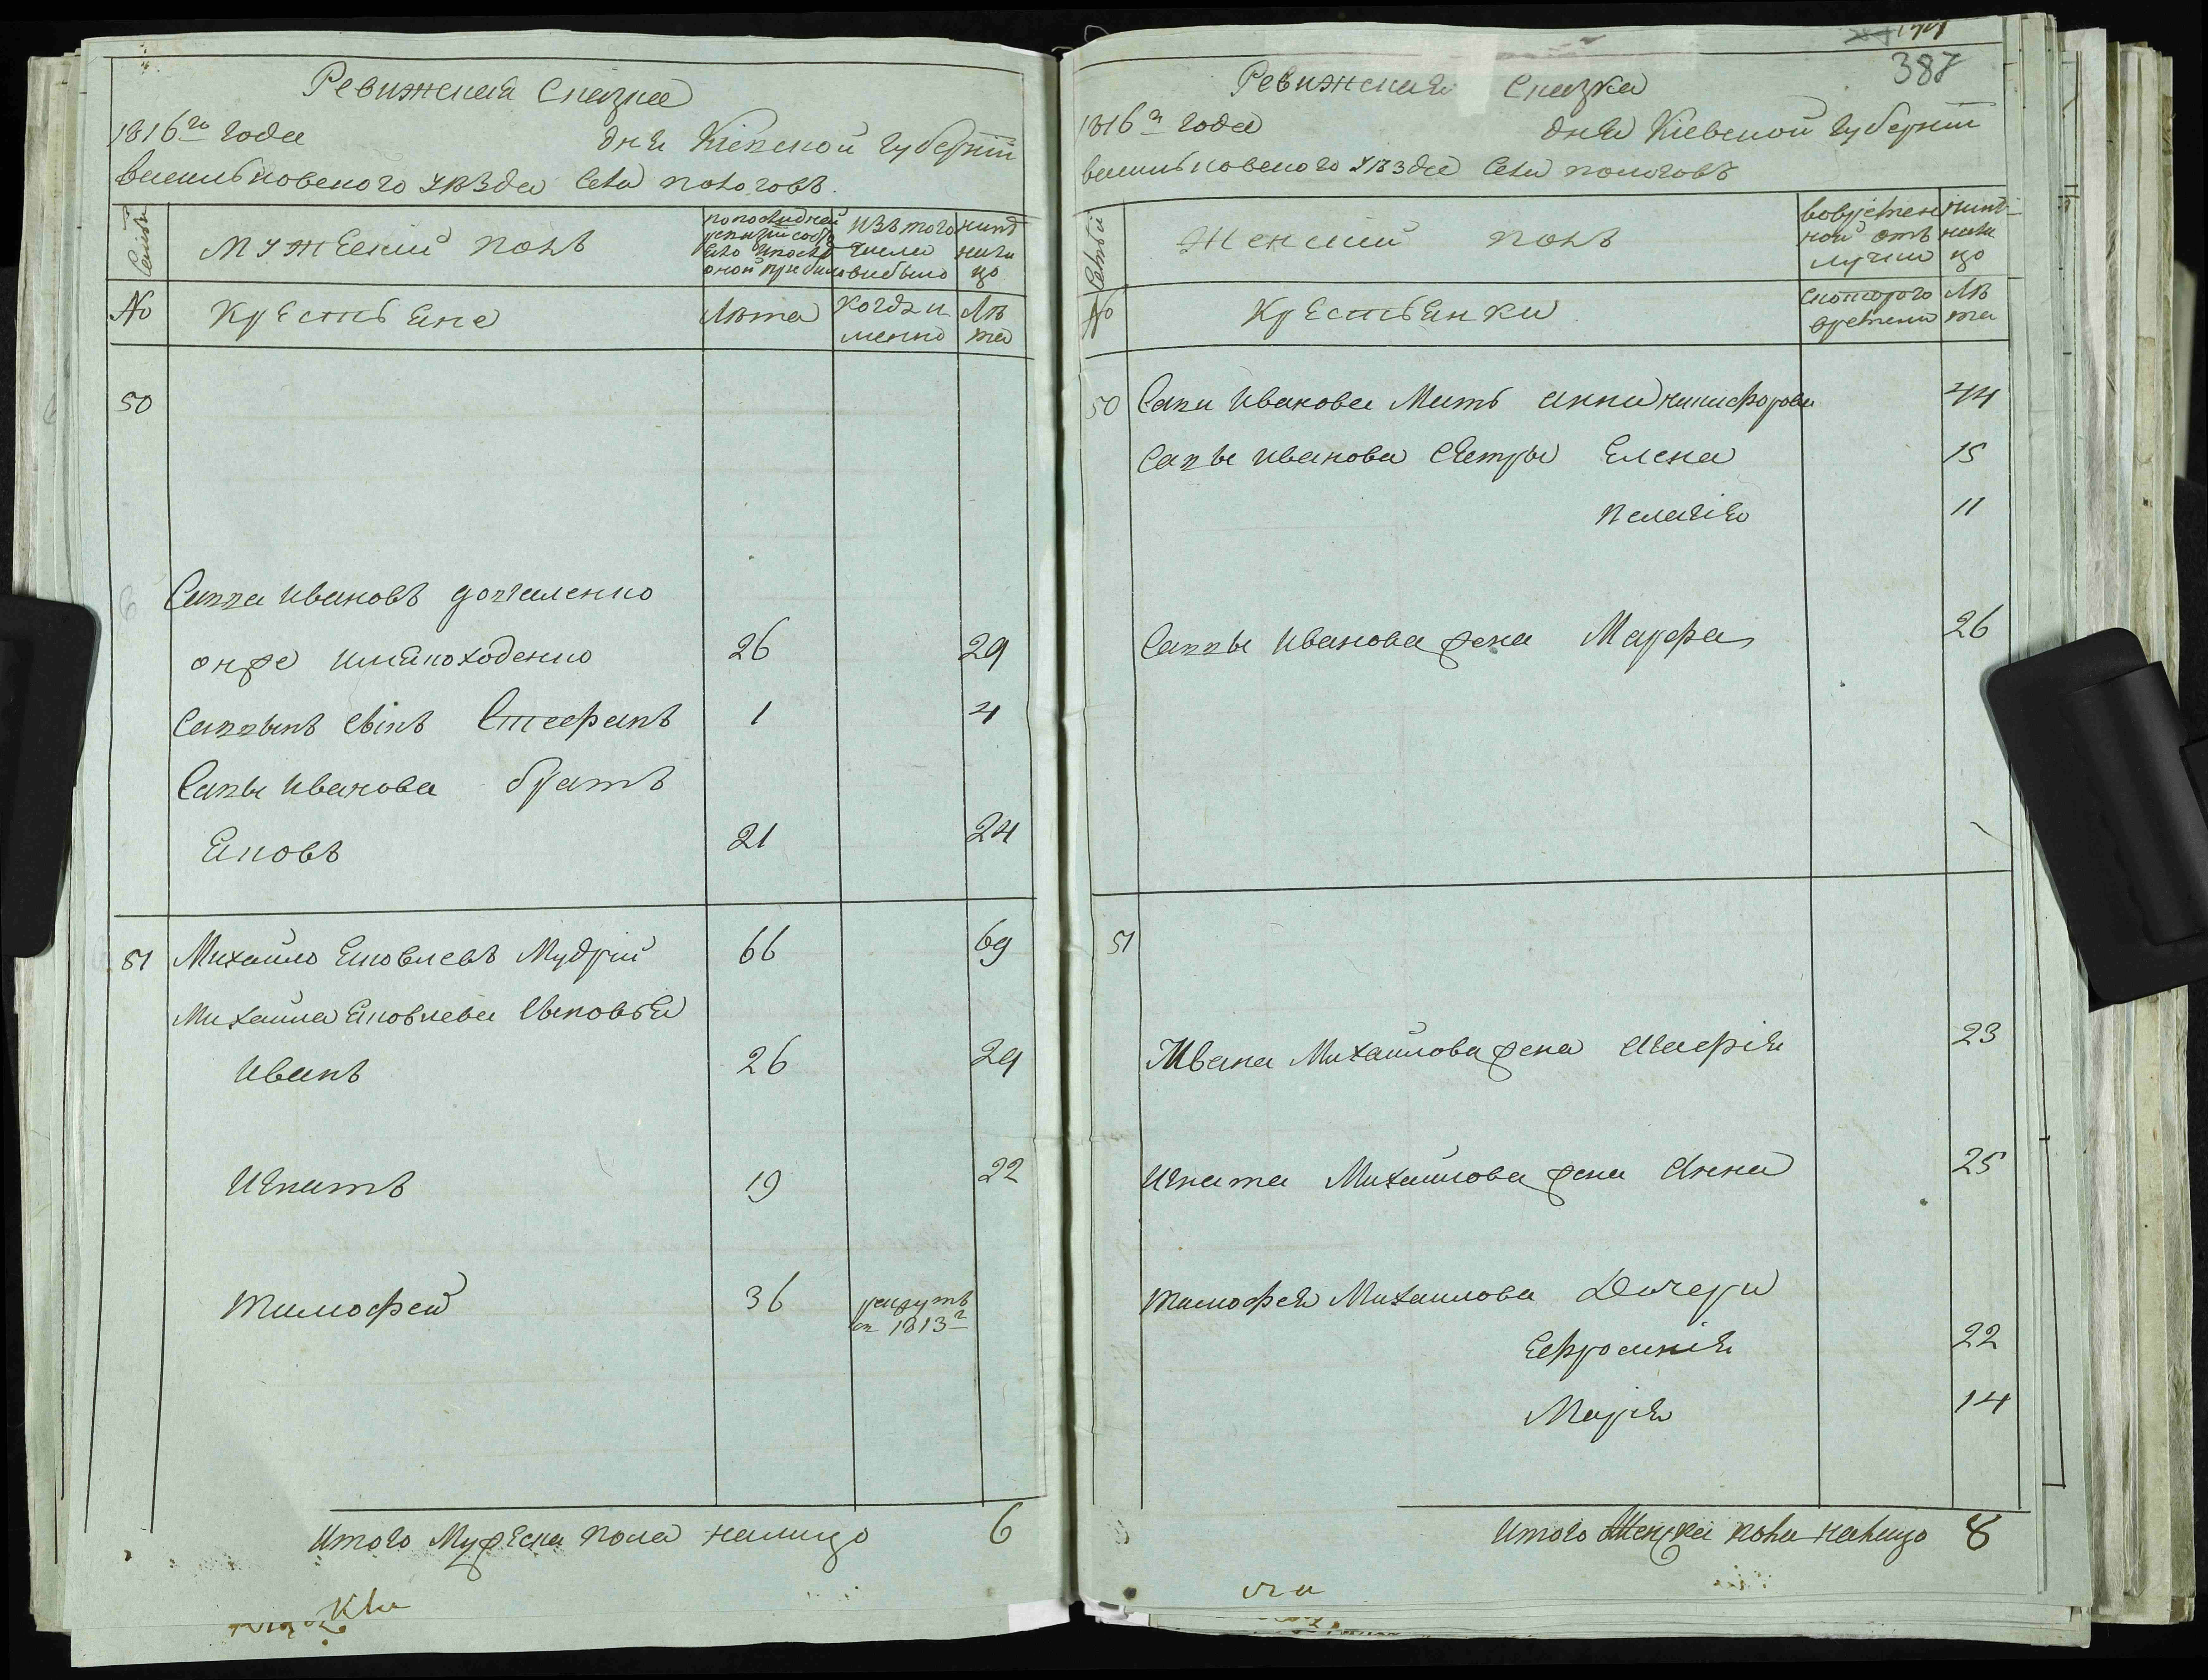 Ревижская Сказка
1816го года дня Кіевской губерніи
васильковского уѣзда села пологовъ.
Семьи
мужеский полъ
по последней ревизіи состояло и после оной прибило
изъ того числа выбыло
нинѣ налицо
№
крестьяне
Лѣта
когда именно
Лѣта
50
Савва Ивановъ
онже
26 29
Саввынъ сынъ Стефанъ 1 4
Савы Иванова братъ
Яковъ 21 24
51 Михайло Яковлевъ Мудрий 66 69
Михайла Яковлева сыновья
Иванъ 26 29
Игнатъ 19 22
тимофей 36
в 1813г
Итого Мужеска пола налицо 6
387
Ревижская Сказка
1816г года дня Кіевской губерніи
васильковского уѣзда села пологовъ
Семьи
Женский полъ
во временной отлучки
нинѣ налицо
№
крестьянки
скоторого времени
Лѣта
50 Савы Иванова Мать анна никифорова 44
Савы иванова сестры Елена 15
пелагія 11
Саввы Иванова жена Марфа 26
51
Ивана Михайлова жена 23
Игната Михайлова жена Анна 25
тимофея Михаилова Дочери
Ефросинія 22
Марія 14
Итого Женска пола налицо 8